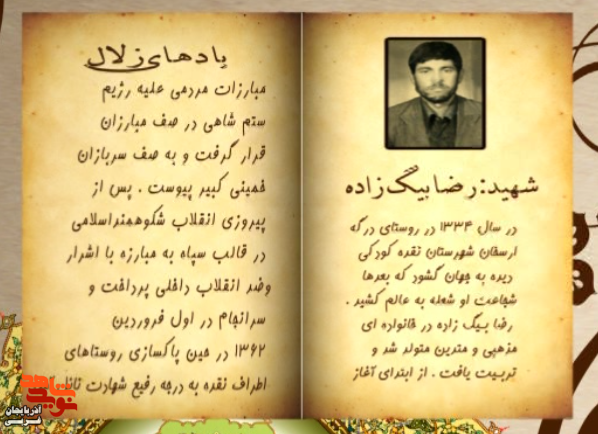 شهید: رضا بیگ زاده
در سال ۱۳۳۴ در روستای درگه
ارسفان شهرستان نقده کودکی
دیده به جهان گشود که بعدها
شجاعت او شعله به عالم کشید .
رضا بیگ زاده در خانواده ای
مذهبی و متدین متولد شد و
تربیت یافت . از ابتدای آغاز
یادهای زلال
مبارزات مردمی علیه رژیم
ستم شاهی در صف مبارزان
قرار گرفت و به صف سربازان
خمینی کبیر پیوست . پس از
پیروزی انقلاب شکوهمند اسلامی
در قالب سپاه به مبارزه با اشرار
وضد انقلاب داخلی پرداخت و
سرانجام در اول فروردین
۱۳۶۲ در حین پاکسازی روستاهای
اطراف نقده به درجه رفیع شهادت نائل
نوید شاهد
آذربایجان
غربی